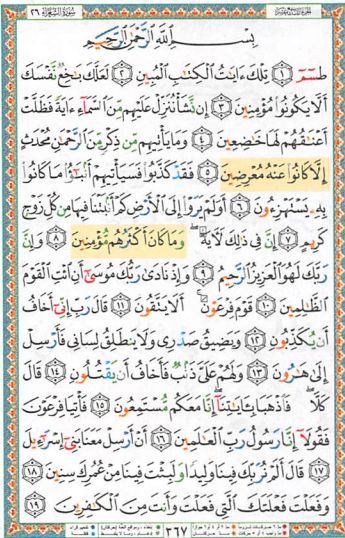 سُورَةُ الشُّعَرَاءِ ٢٦
بِسْمِ ٱللَّهِ ٱلرَّحْمَٰنِ ٱلرَّحِيمِ
طسٓمٓ ١ تِلْكَ ءَايَٰتُ ٱلْكِتَٰبِ ٱلْمُبِينِ ٢ لَعَلَّكَ بَٰخِعٌ نَّفْسَكَ
أَلَّا يَكُونُوا۟ مُؤْمِنِينَ ٣ إِن نَّشَأْ نُنَزِّلْ عَلَيْهِم مِّنَ ٱلسَّمَآءِ ءَايَةً فَظَلَّتْ
أَعْنَٰقُهُمْ لَهَا خَٰضِعِينَ ٤ وَمَا يَأْتِيهِم مِّن ذِكْرٍ مِّنَ ٱلرَّحْمَٰنِ مُحْدَثٍ
إِلَّا كَانُوا۟ عَنْهُ مُعْرِضِينَ ٥ فَقَدْ كَذَّبُوا۟ فَسَيَأْتِيهِمْ أَنۢبَٰٓؤُا۟ مَا كَانُوا۟
بِهِۦ يَسْتَهْزِءُونَ ٦ أَوَلَمْ يَرَوْا۟ إِلَى ٱلْأَرْضِ كَمْ أَنۢبَتْنَا فِيهَا مِن كُلِّ زَوْجٍ
كَرِيمٍ ٧ إِنَّ فِى ذَٰلِكَ لَءَايَةً ۖ وَمَا كَانَ أَكْثَرُهُم مُّؤْمِنِينَ ٨ وَإِنَّ
رَبَّكَ لَهُوَ ٱلْعَزِيزُ ٱلرَّحِيمُ ٩ وَإِذْ نَادَىٰ رَبُّكَ مُوسَىٰٓ أَنِ ٱئْتِ ٱلْقَوْمَ
ٱلظَّٰلِمِينَ ١٠ قَوْمَ فِرْعَوْنَ ۚ أَلَا يَتَّقُونَ ١١ قَالَ رَبِّ إِنِّىٓ أَخَافُ
أَن يُكَذِّبُونِ ١٢ وَيَضِيقُ صَدْرِى وَلَا يَنطَلِقُ لِسَانِى فَأَرْسِلْ
إِلَىٰ هَٰرُونَ ١٣ وَلَهُمْ عَلَىَّ ذَنۢبٌ فَأَخَافُ أَن يَقْتُلُونِ ١٤ قَالَ
كَلَّا ۖ فَٱذْهَبَا بِـَٔايَٰتِنَآ ۖ إِنَّا مَعَكُم مُّسْتَمِعُونَ ١٥ فَأْتِيَا فِرْعَوْنَ
فَقُولَآ إِنَّا رَسُولُ رَبِّ ٱلْعَٰلَمِينَ ١٦ أَنْ أَرْسِلْ مَعَنَا بَنِىٓ إِسْرَٰٓءِيلَ
١٧ قَالَ أَلَمْ نُرَبِّكَ فِينَا وَلِيدًا وَلَبِثْتَ فِينَا مِنْ عُمُرِكَ سِنِينَ ١٨
وَفَعَلْتَ فَعْلَتَكَ ٱلَّتِى فَعَلْتَ وَأَنتَ مِنَ ٱلْكَٰفِرِينَ ١٩
٣٦٧